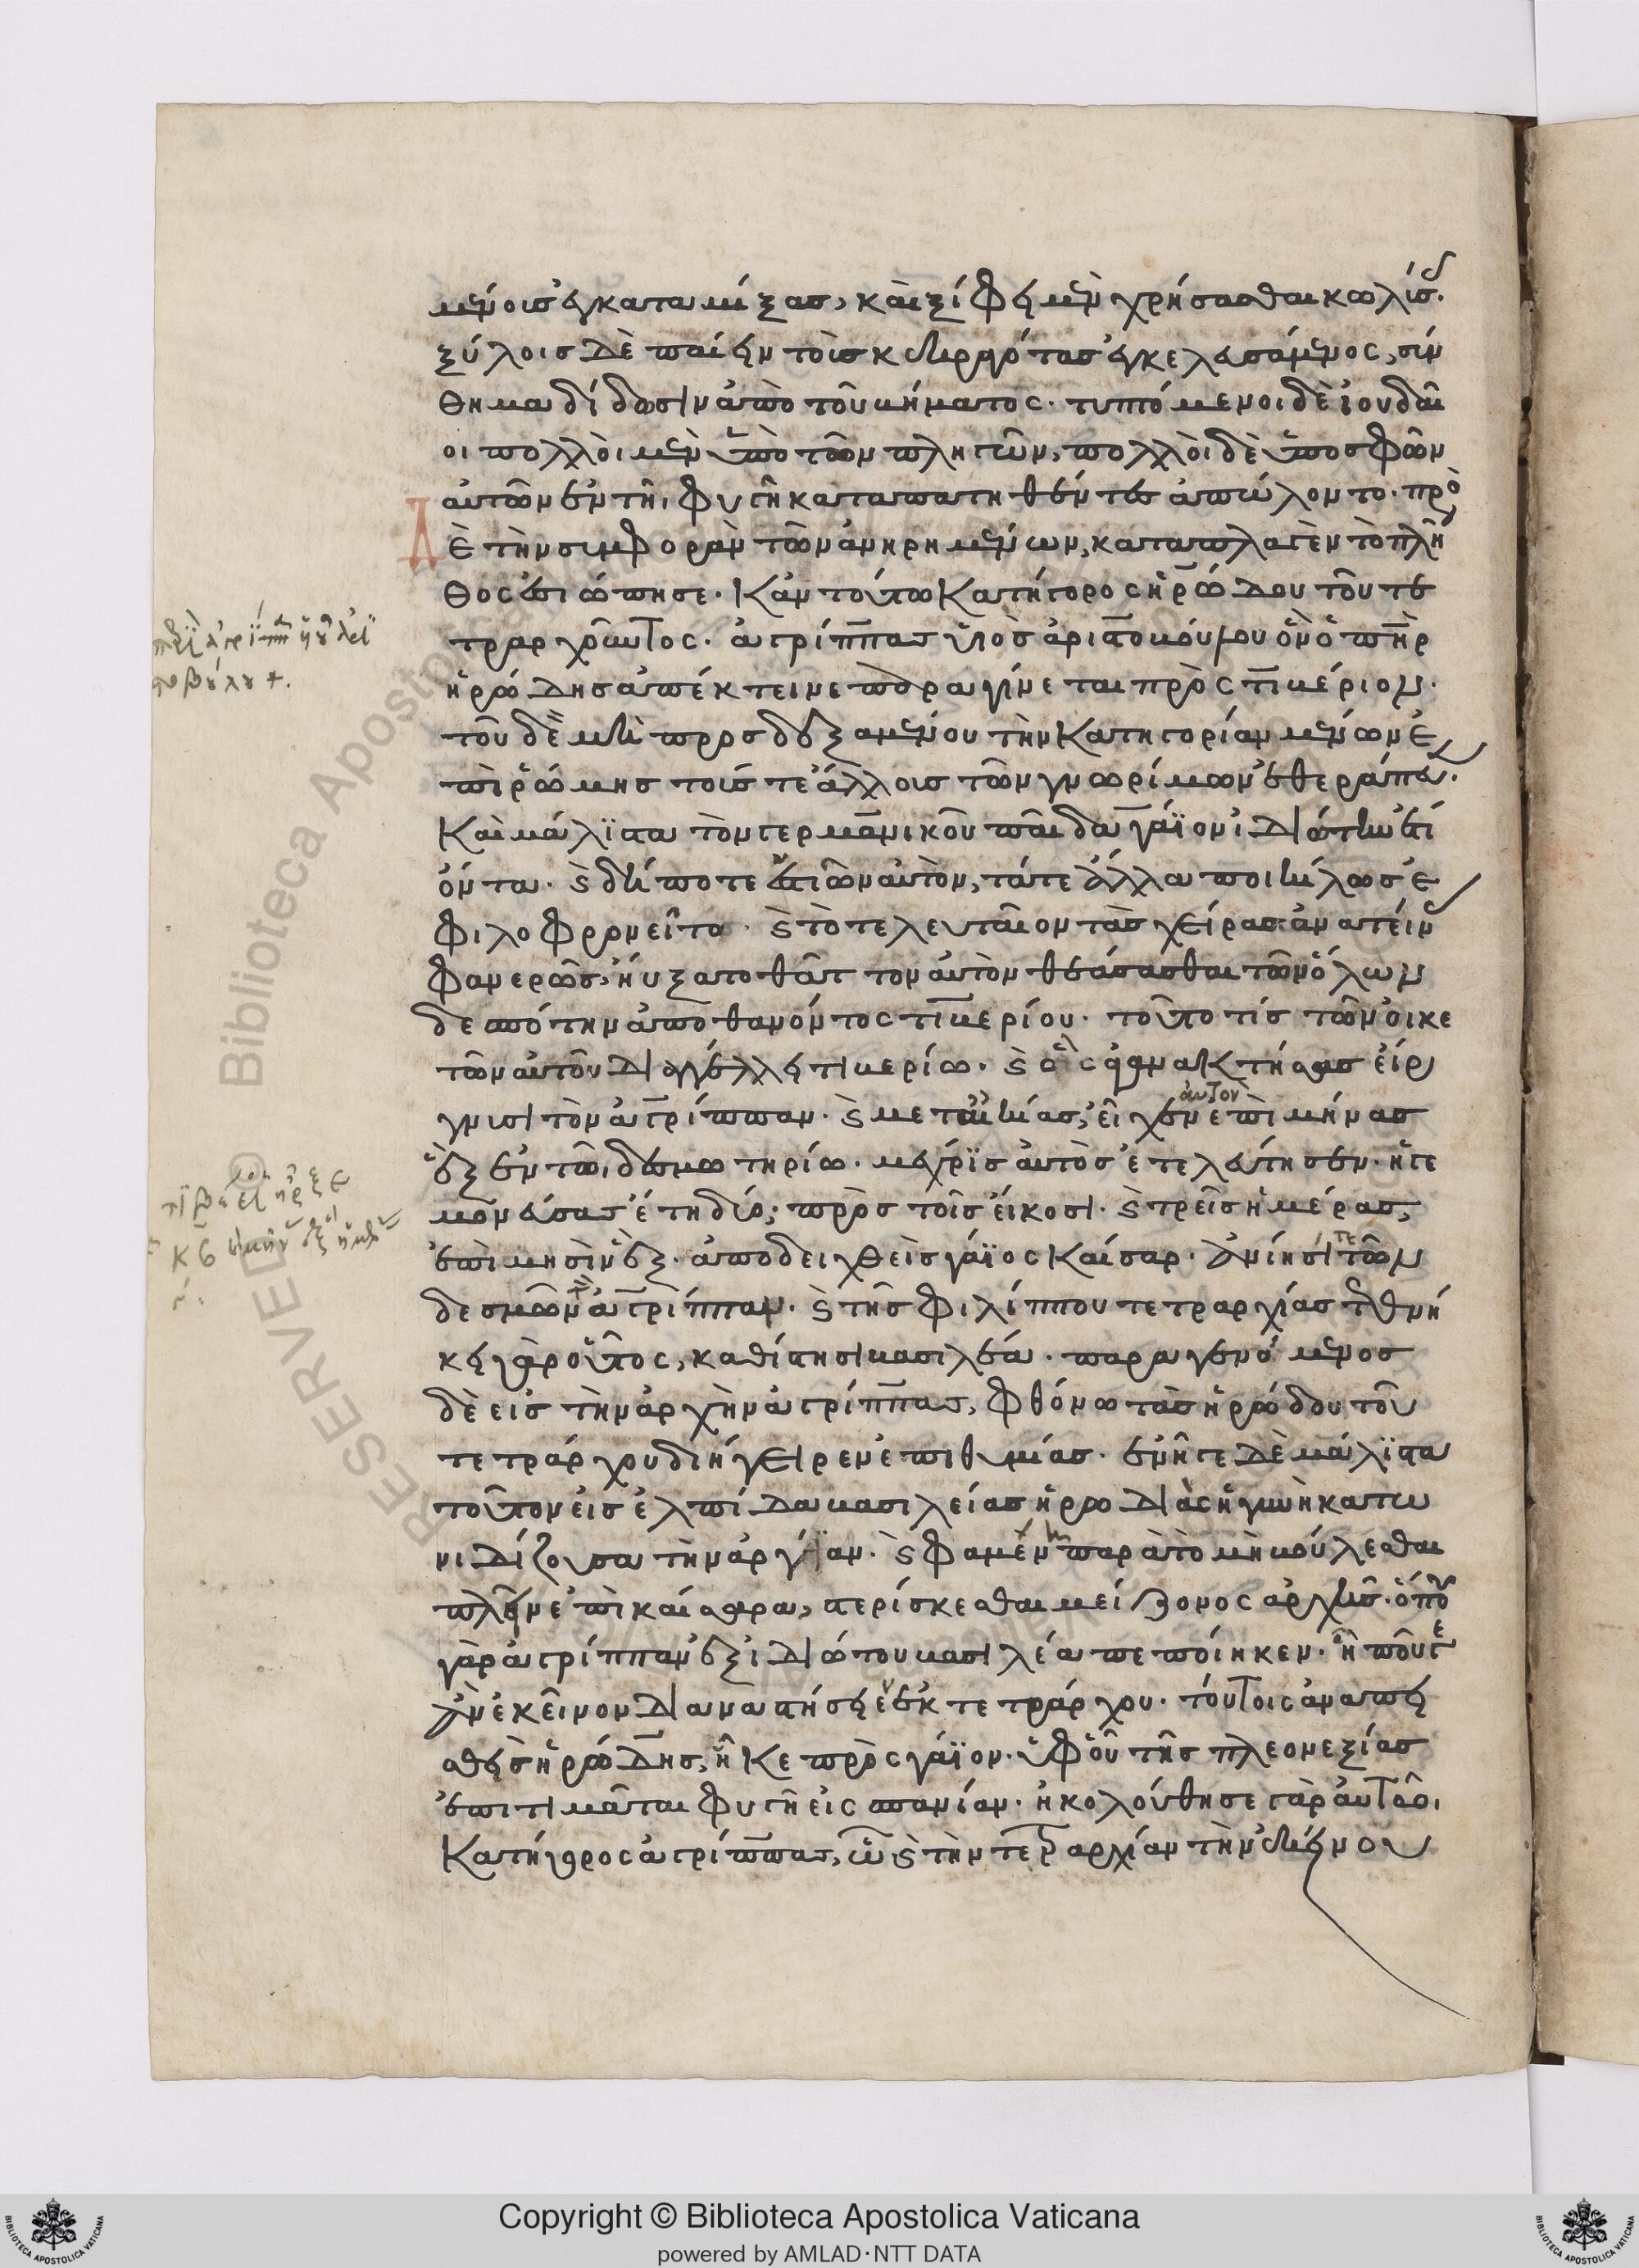 μένοις ἐγκαταμίξας, καὶ ξίφει μὲν χρήσασθαι κωλύσ.
ξύλοις δὲ παίειν τοὺς κεκραγότας ἐγκελευσάμενος, σύν
θημα δίδωσιν ἀπὸ τοῦ βήματος. τυπτόμενοι δὲ ἰουδαῖ
οι πολλοὶ μὲν ὑπὸ τῶν πληγῶν, πολλοὶ δὲ ὑπὸ σφῶν
αὐτῶν ἐν τῆι φυγῆι καταπατηθέντες ἀπώλοντο. πρὸς
Δὲ τὴν συμφορὰν τῶν ἀνηρημένων, καταπλαγὲν τὸ πλῆ
θος ἐσιώπησε. Κἀν τούτω κατήγορος ἡρώδου τοῦ τε
τραρχοῦντος. ἀγρίππας υἱὸς ἀριστοβούλου ὃν ὁ πατὴρ
ἡρώδης ἀπέκτεινε παραγίνεται πρὸς τιβέριον.
τοῦ δὲ μὴ προσδεξαμένου τὴν κατηγορίαν μένων ἐ
πὶ ῥώμης τούς τε ἄλλους τῶν γνωρίμων ἐθεράπευ.
Καὶ μάλιστα τὸν γερμανικοῦ παῖδα γάϊον ἰδιώτην ἔτι
ὄντα. καὶ δή ποτε ἑστιῶν αὐτὸν, τά τε ἄλλα ποικίλως ἐ
φιλοφρονεῖτο. καὶ τὸ τελευταῖον τὰς χεῖρας ἀνατείν
φανερῶς, ηὔξατο θᾶττον αὐτὸν θεάσασθαι τῶν ὅλων
δεσπότην ἀποθανόντος τιβερίου. τοῦτό τις τῶν οἰκε
τῶν αὐτοῦ διαγγέλλει τιβερίω. καὶ ὃς ἀγανακτήσας εἵρ
γνυσι τὸν ἀγρίππαν. καὶ μετ' αἰκίας, εἶχεν αὐτὸν ἐπὶ μῆνας
ἓξ ἐν τῶι δεσμωτηρίω. μέχρις αὐτὸς ἐτελεύτησεν. ἡγε
μονεύσας ἔτη δύο, πρὸς τοῖς εἴκοσι. καὶ τρεῖς ἡμέρας,
ἐπὶ μησὶν ἕξ. ἀποδειχθεὶς γάϊος Καίσαρ. ἀνίησί τε τῶν
δεσμῶν τὸν ἀγρίππαν. καὶ τῆς φιλίππου τετραρχίας τεθνή
κει γὰρ οὗτος, καθίστησι βασιλέα. παραγενόμενος
δὲ εἰς τὴν ἀρχὴν ἀγρίππας, φθόνω τὰς ἡρώδου τοῦ
τετράρχου διήγειρεν ἐπιθυμίας. ἐνῆγε δὲ μάλιστα
τοῦτον εἰς ἐλπίδα βασιλείας ἡρωδιὰς ἡ γυνὴ κατω
νιδίζουσα τὴν ἀργίαν. καὶ φαμένη παρὰ τὸ μὴ βούλεσθαι
πλεῖν ἐπὶ καίσαρα, στερίσκεσθαι μείζονος ἀρχῆς. ὅπου
γὰρ ἀγρίππαν ἐξ ἰδιώτου βασιλέα πεποίηκεν. ἦ πού γε
ἂν ἐκεῖνον διαναστήσει ἐκ τετράρχου. τούτοις ἀναπει
σθεὶς ἡρώδης, ἧκε πρὸς γάϊον. ὑφ' οὗ τῆς πλεονεξίας
ἐπιτιμᾶται φυγῆι εἰς σπανίαν. ἠκολούθησε γὰρ αὐτῶι
Κατήγορος ἀγρίππας, ὧ καὶ τὴν τετραρχίαν τὴν ἐκείνου